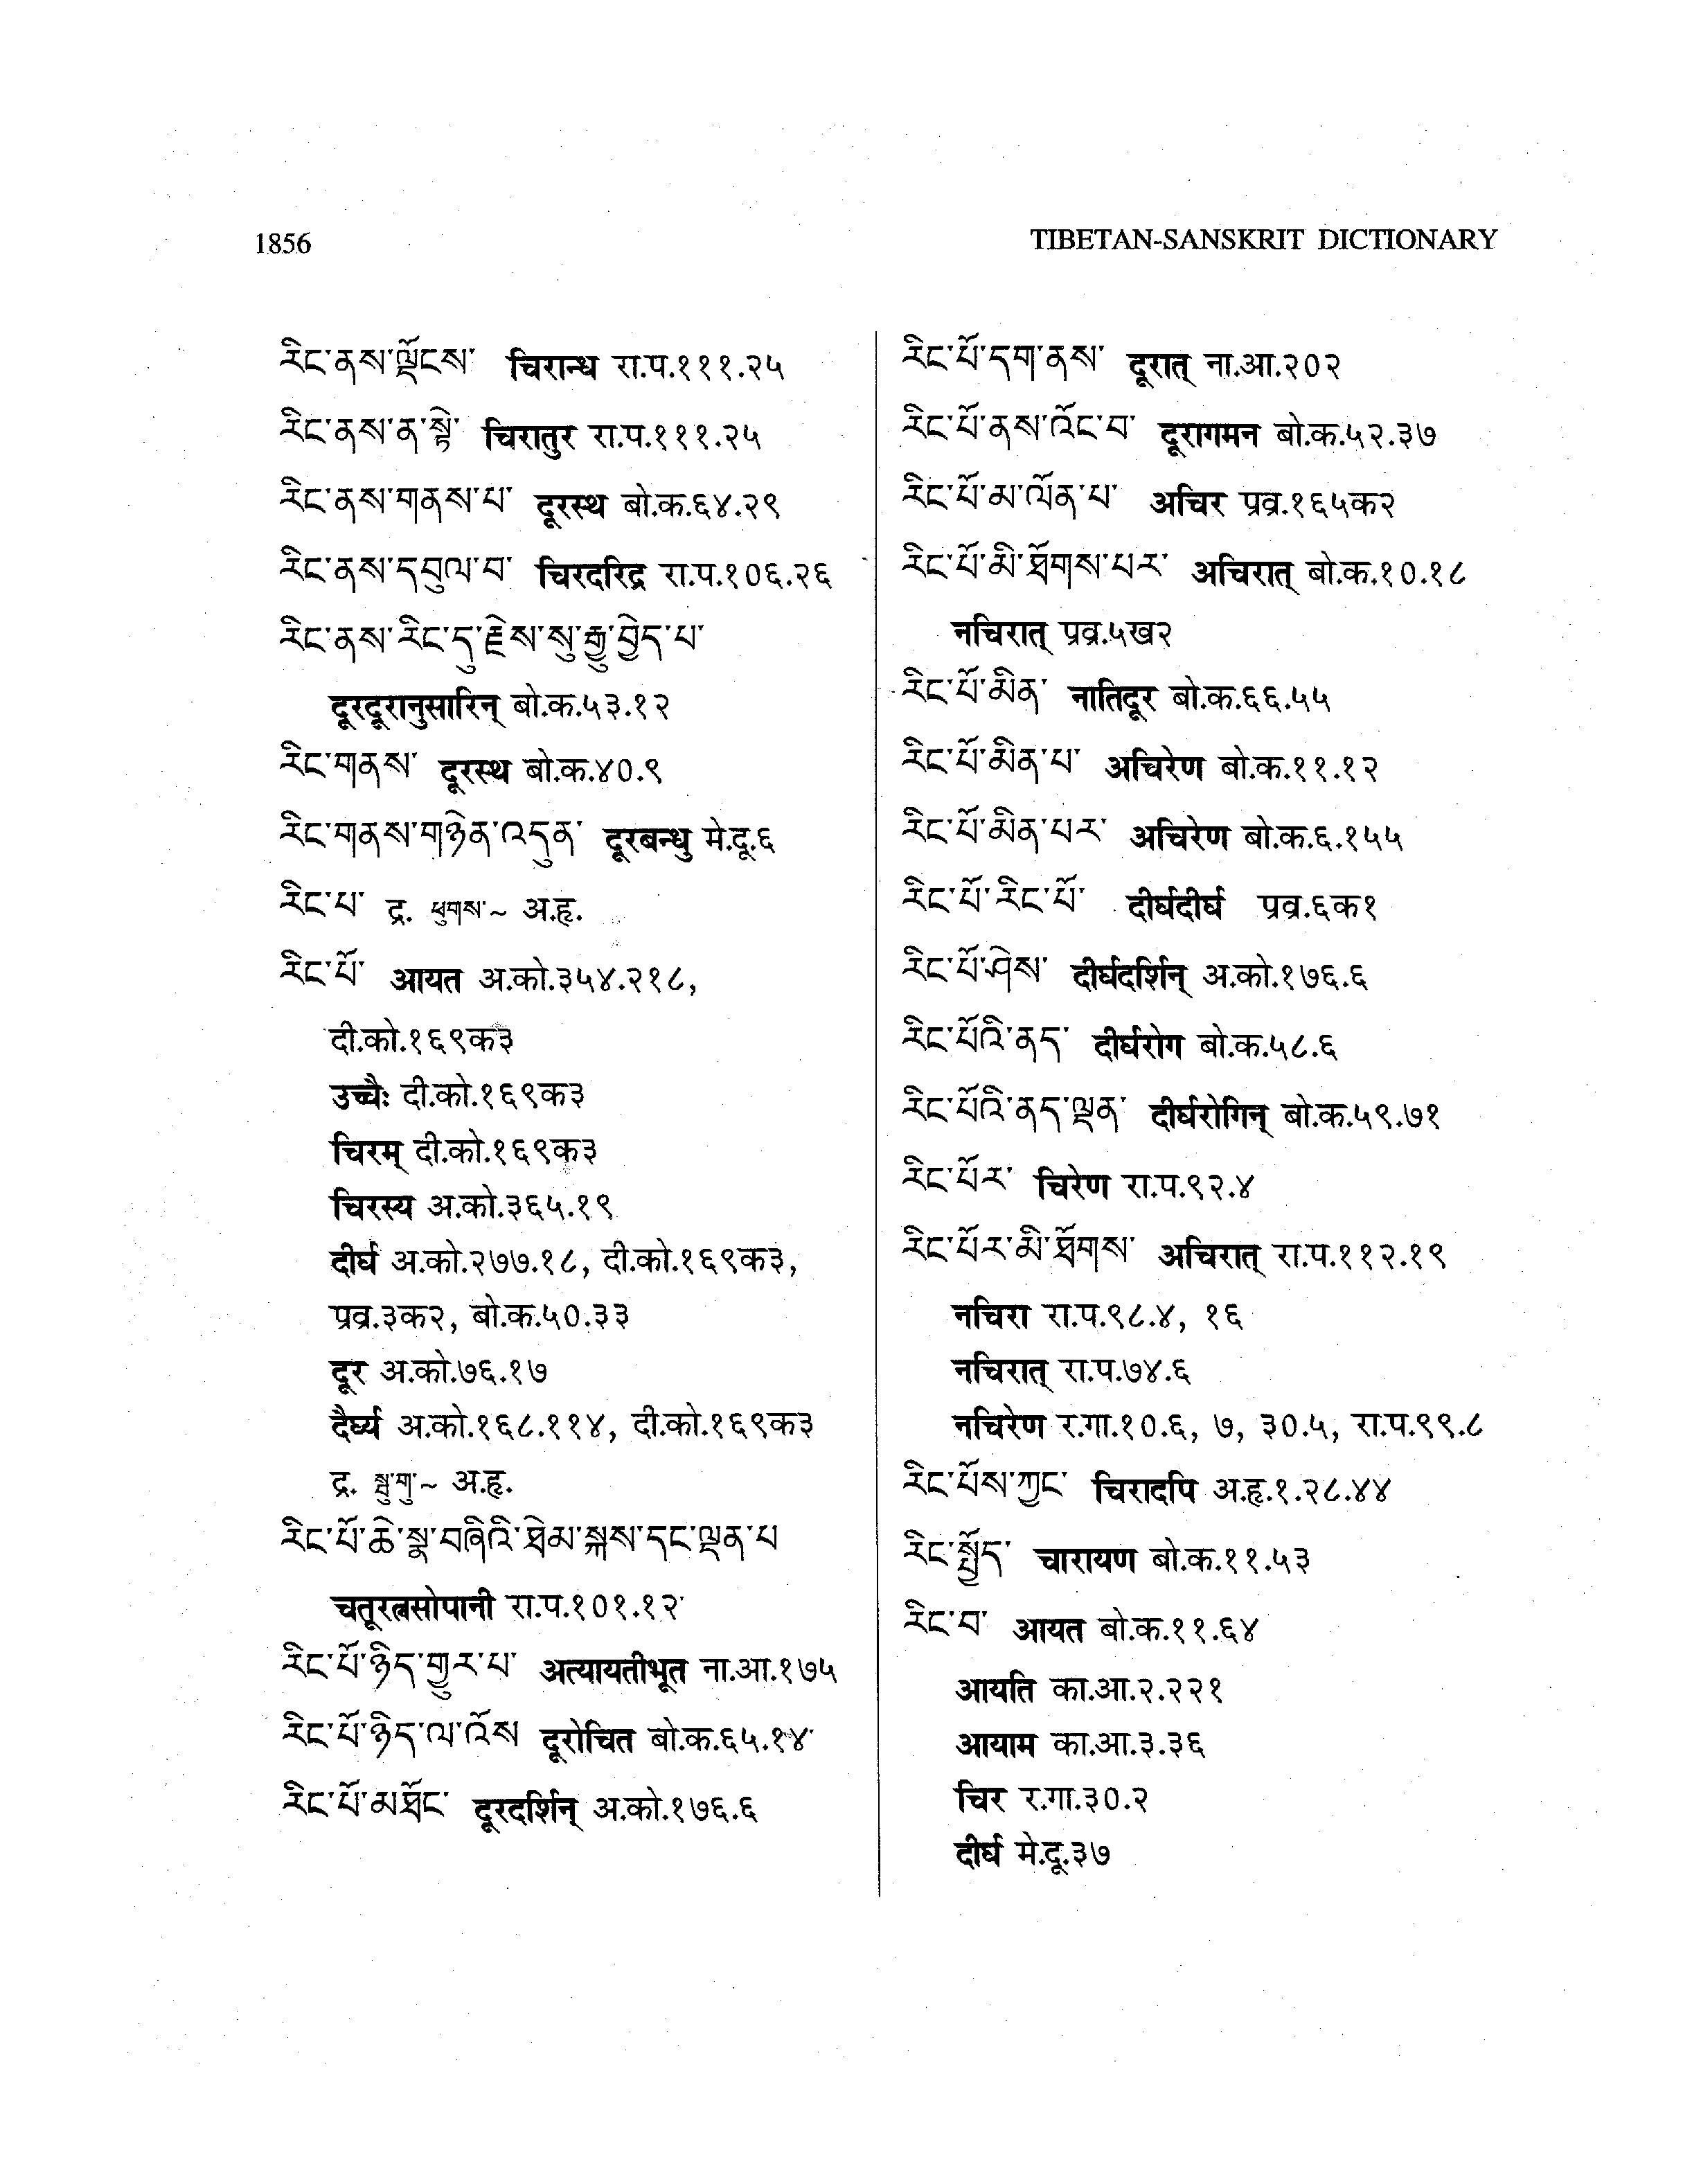 1856
TIBETAN-SANSKRIT DICTIONARY
རིང་ནས་ལྡོངས་ चिरान्ध रा.प.१११.२५
རིང་ནས་ན་སྟེ་ चिरातुर रा.प.१११.२५
རིང་ནས་གནས་པ་ दूरस्थ बो.क.६४.२९
རིང་ནས་དབུལ་བ་ चिरदरिद्र रा.प.१०६.२६
རིང་ནས་རིང་དུ་རྗེས་སུ་རྒྱུ་བྱེད་པ་
दूरदूरानुसारिन् बो.क.५३.१२
རིང་གནས་ दूरस्थ बो.क.४०.९
རིང་གནས་གཉེན་འདུན་ दूरबन्धु मे.दू.६
རིང་པ་ द्र. ཕུགས་~ अ.हृ.
རིང་པོ་ आयत अ.को.३५४.२१८,
दी.को.१६९क३
उच्चैः दी.को.१६९क३
चिरम् दी.को.१६९क३
चिरस्य अ.को.३६५.१९
दीर्घ अ.को.२७७.१८, दी.को.१६९क३,
प्रव्र.३क२, बो.क.५०.३३
दूर अ.को.७६.१७
दैर्घ्य अ.को.१६८.११४, दी.को.१६९क३
द्र. སྦུ་གུ་~ अ.हृ.
རིང་པོ་ཆེ་སྣ་བཞིའི་ཐེམ་སྐས་དང་ལྡན་པ
चतूरत्नसोपानी रा.प.१०१.१२
རིང་པོ་ཉིད་གྱུར་པ་ अत्यायतीभूत ना.आ.१७५
རིང་པོ་ཉིད་ལ་འོས दूरोचित बो.क.६५.१४
རིང་པོ་མཐོང་ दूरदर्शिन् अ.को.१७६.६
རིང་པོ་དག་ནས་ दूरात् ना.आ.२०२
རིང་པོ་ནས་འོང་བ་ दूरागमन बो.क.५२.३७
རིང་པོ་མ་ལོན་པ་ अचिर प्रव्र.१६५क२
རིང་པོ་མི་ཐོགས་པར་ अचिरात् बो.क.१०.१८
नचिरात् प्रव्र.५ख२
རིང་པོ་མིན་ नातिदूर बो.क.६६.५५
རིང་པོ་མིན་པ་ अचिरेण बो.क.११.१२
རིང་པོ་མིན་པར་ अचिरेण बो.क.६.१५५
རིང་པོ་རིང་པོ་ दीर्घदीर्घ प्रव्र.६क१
རིང་པོ་ཤེས་ दीर्घदर्शिन् अ.को.१७६.६
རིང་པོའི་ནད་ दीर्घरोग बो.क.५८.६
རིང་པོའི་ནད་ལྡན་ दीर्घरोगिन् बो.क.५९.७१
རིང་པོར་ चिरेण रा.प.९२.४
རིང་པོར་མི་ཐོགས་ अचिरात् रा.प.११२.१९
नचिरा रा.प.९८.४, १६
नचिरात् रा.प.७४.६
नचिरेण र.गा.१०.६, ७, ३०.५, रा.प.९९.८
རིང་པོས་ཀྱང་ चिरादपि अ.हृ.१.२८.४४
རིང་སྤྱོད་ चारायण बो.क.११.५३
རིང་བ་ आयत बो.क.११.६४
आयति का.आ.२.२२१
आयाम का.आ.३.३६
चिर र.गा.३०.२
दीर्घ मे.दू.३७